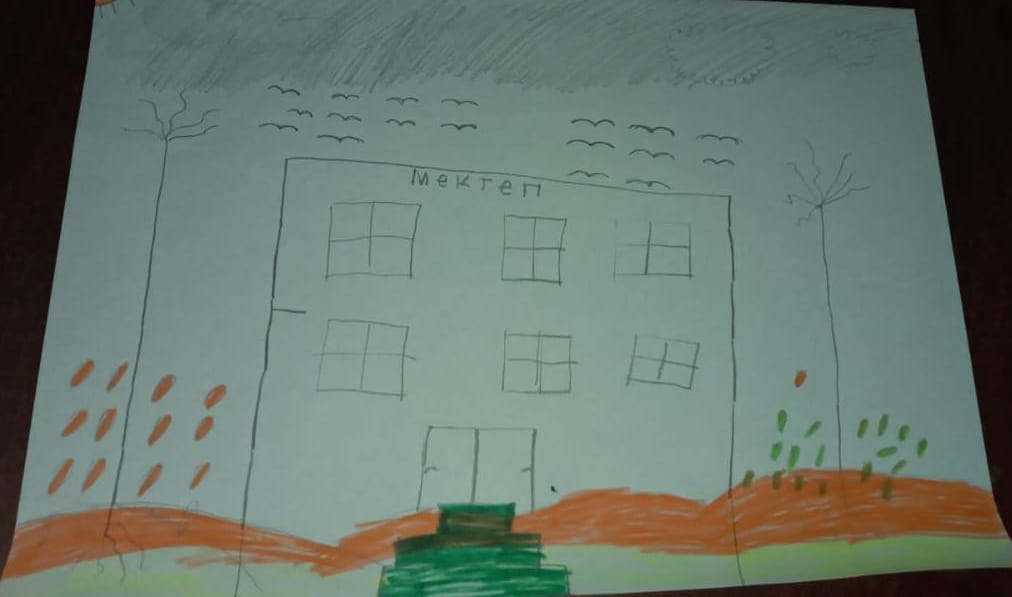 Мектеп